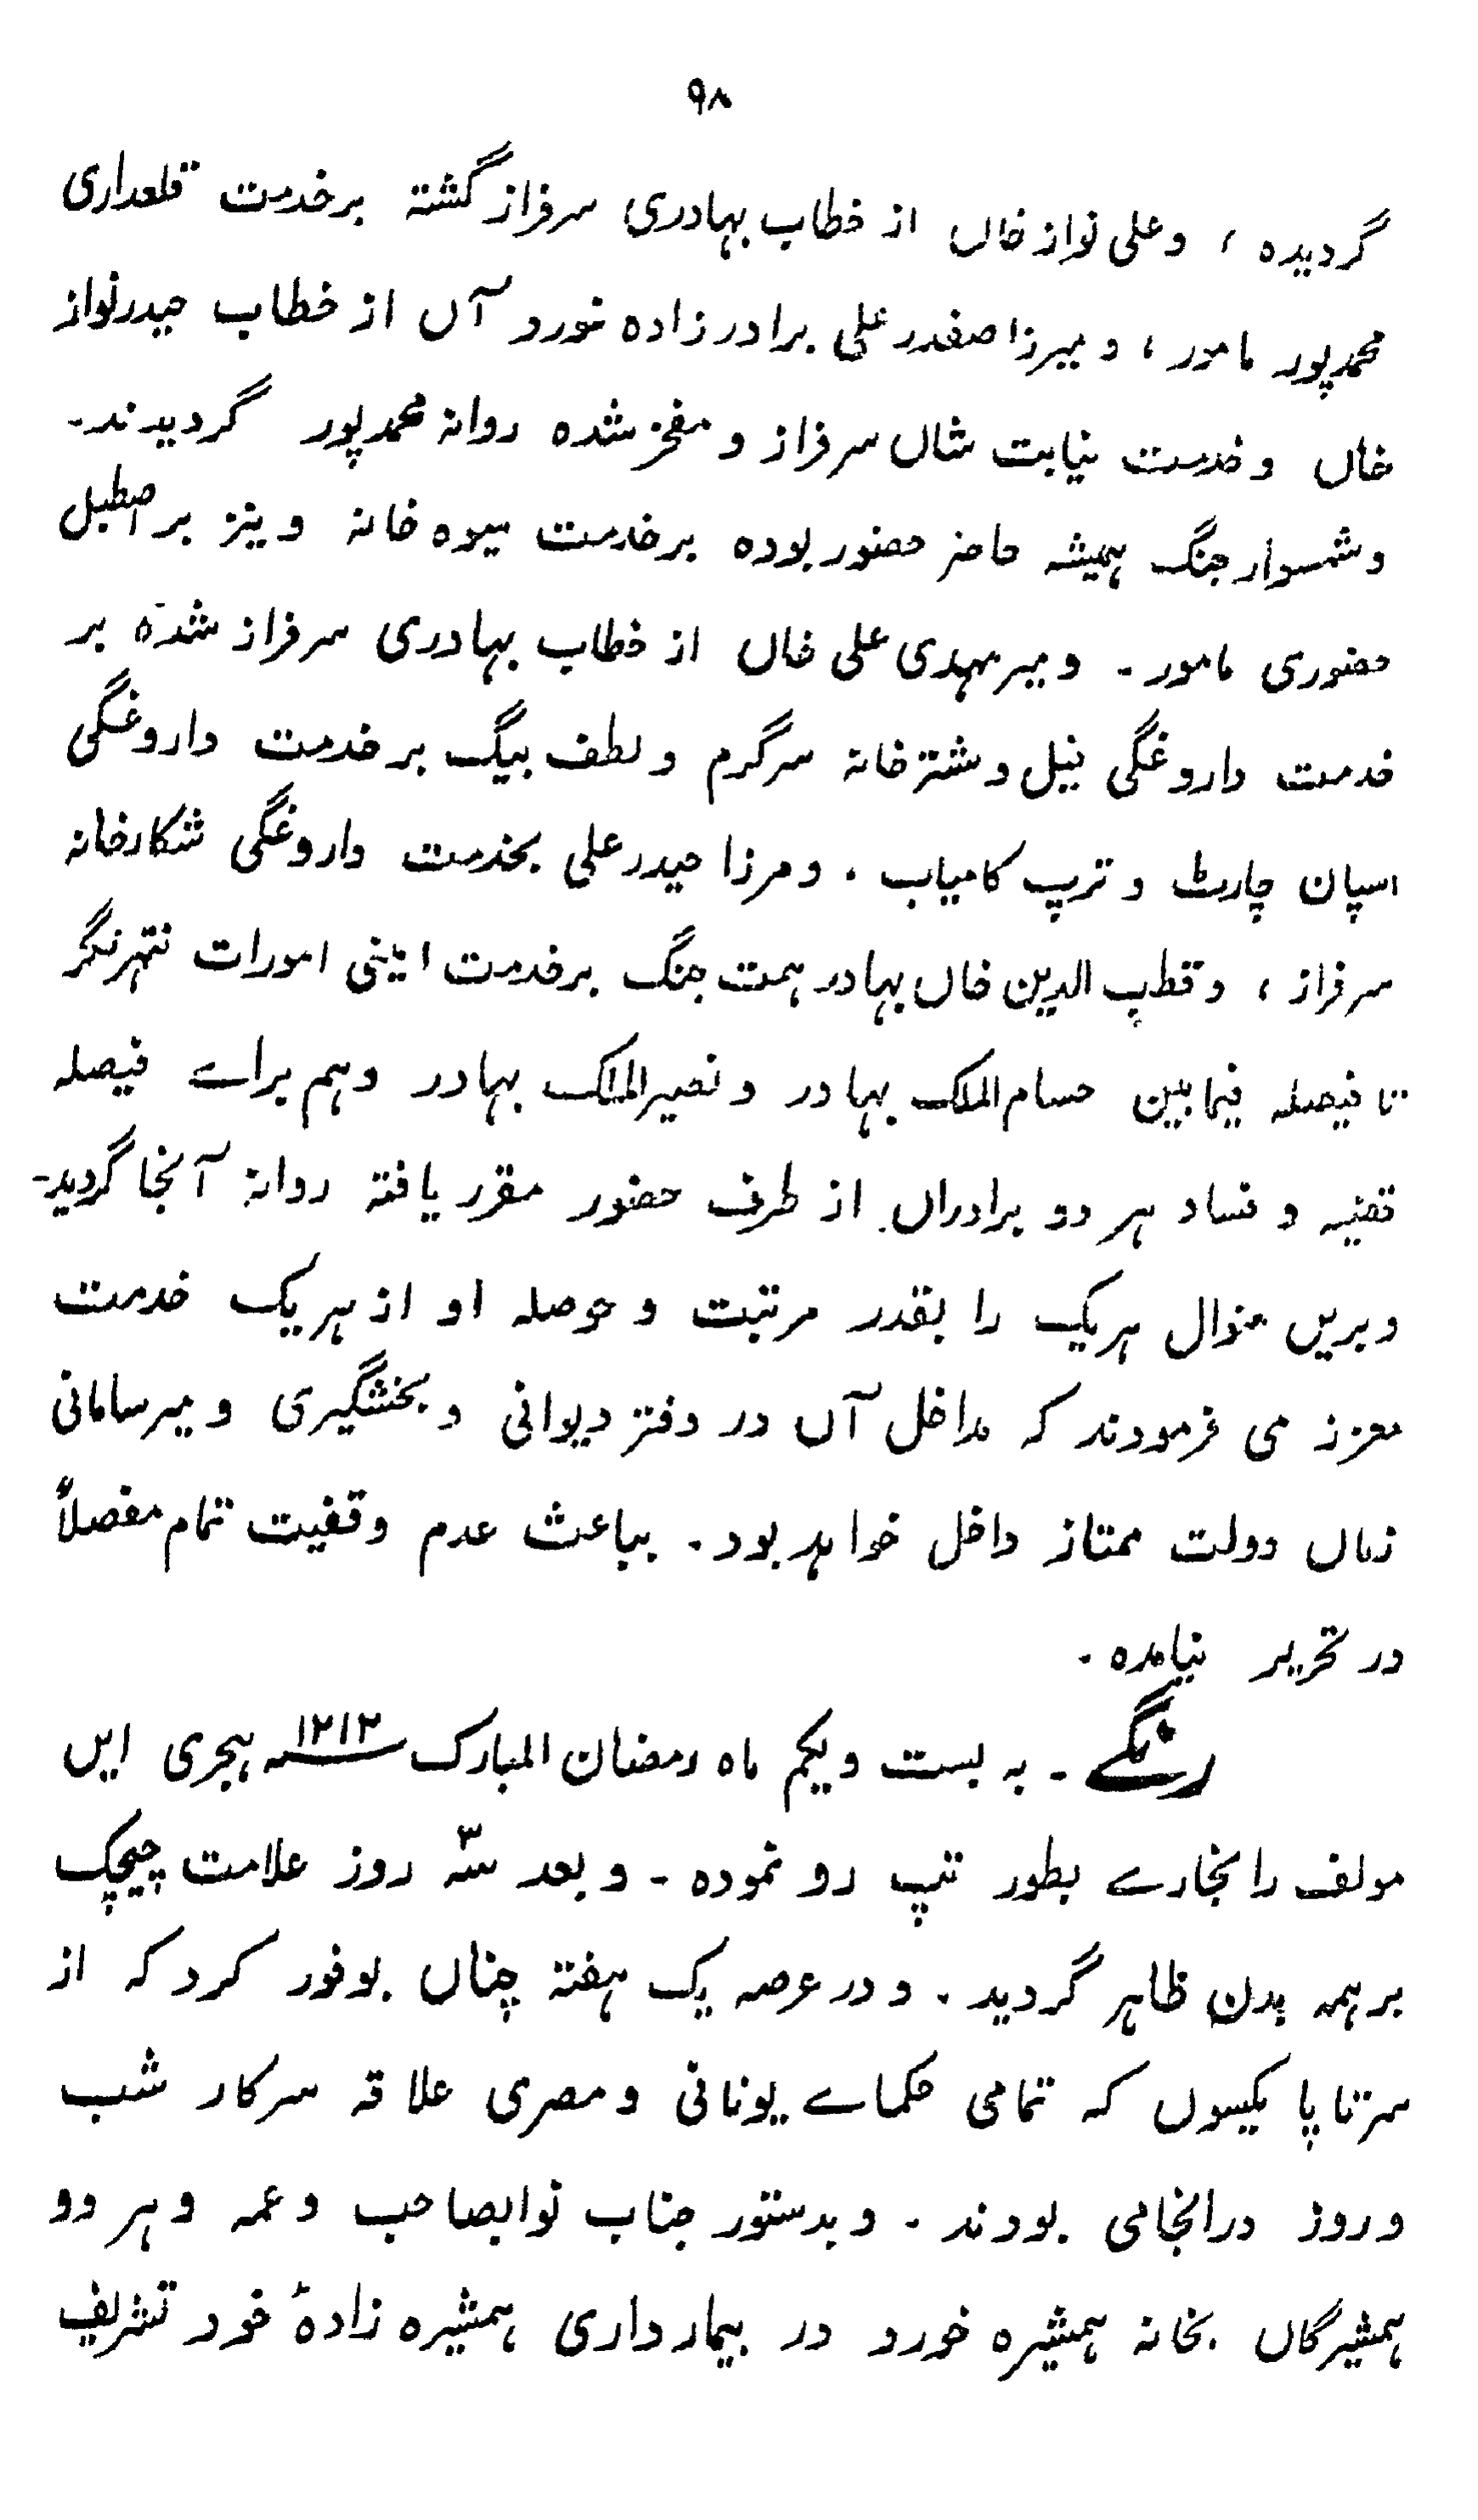 ۹۸
گردیدہ ، و علی نواز خاں از خطاب بہادری سرفراز گشتہ برخدمت قلعداری
محمدپور مامور ، و میرزا صفدر علی برادر زادہ خورد آں از خطاب حیدر نواز
خاں و خدمت نیابت شاں سرفراز و مفخر شدہ روانہ محمدپور گردیدند۔
و شہسوار جنگ ہمیشہ حاضر حضور بودہ برخدمت میوہ خانہ و نیز بر اصطبل
حضوری مامور ۔ و میر مہدی علی خاں از خطاب بہادری سرفراز شدہ بر
خدمت داروغگی فیل و شتر خانہ سرگرم و لطف بیگ بر خدمت داروغگی
اسپان چارٹ و ترپ کامیاب ۔ و مرزا حیدر علی بخدمت داروغگی شکارخانہ
سرفراز ، و قطب الدین خاں بہادر ہمت جنگ برخدمت امینی امورات نتہرنگر
تا فیصلہ فیمابین حسام الملک بہادر و نصیر الملک بہادر و ہم براے فیصلہ
قضیہ و فساد ہر دو برادراں از طرف حضور مقرر یافتہ روانۂ آنجا گردید۔
و بریں منوال ہریک را بقدر مرتبت و حوصلہ او از ہریک خدمت
معزز می فرمودند کہ مداخل آں در دفتر دیوانی و بخشگیری و میرسامانی
زماں دولت ممتاز داخل خواہد بود ۔ بباعث عدم وقفیت تمام مفصلاً
در تحریر نیامدہ ۔
رنگے ۔ بہ بست و یکم ماہ رمضان المبارک سنہ ۱۲۱۲ ہجری ایں
مولف را بخارے بطور تپ رو نمودہ ۔ و بعد سہ ۳ روز علامت چیچک
بر ہمہ بدن ظاہر گردید ۔ و در عرصہ یک ہفتہ چناں بوفور کرد کہ از
سر تا پا یکسوں کہ تمامی حکماے یونانی و مصری علاقہ سرکار شب
و روز در انجامی بودند ۔ و بدستور جناب نوابصاحب و عمہ و ہر دو
ہمشیرگاں بخانہ ہمشیرہ خورد در بیمارداری ہمشیرہ زادۂ خود تشریف